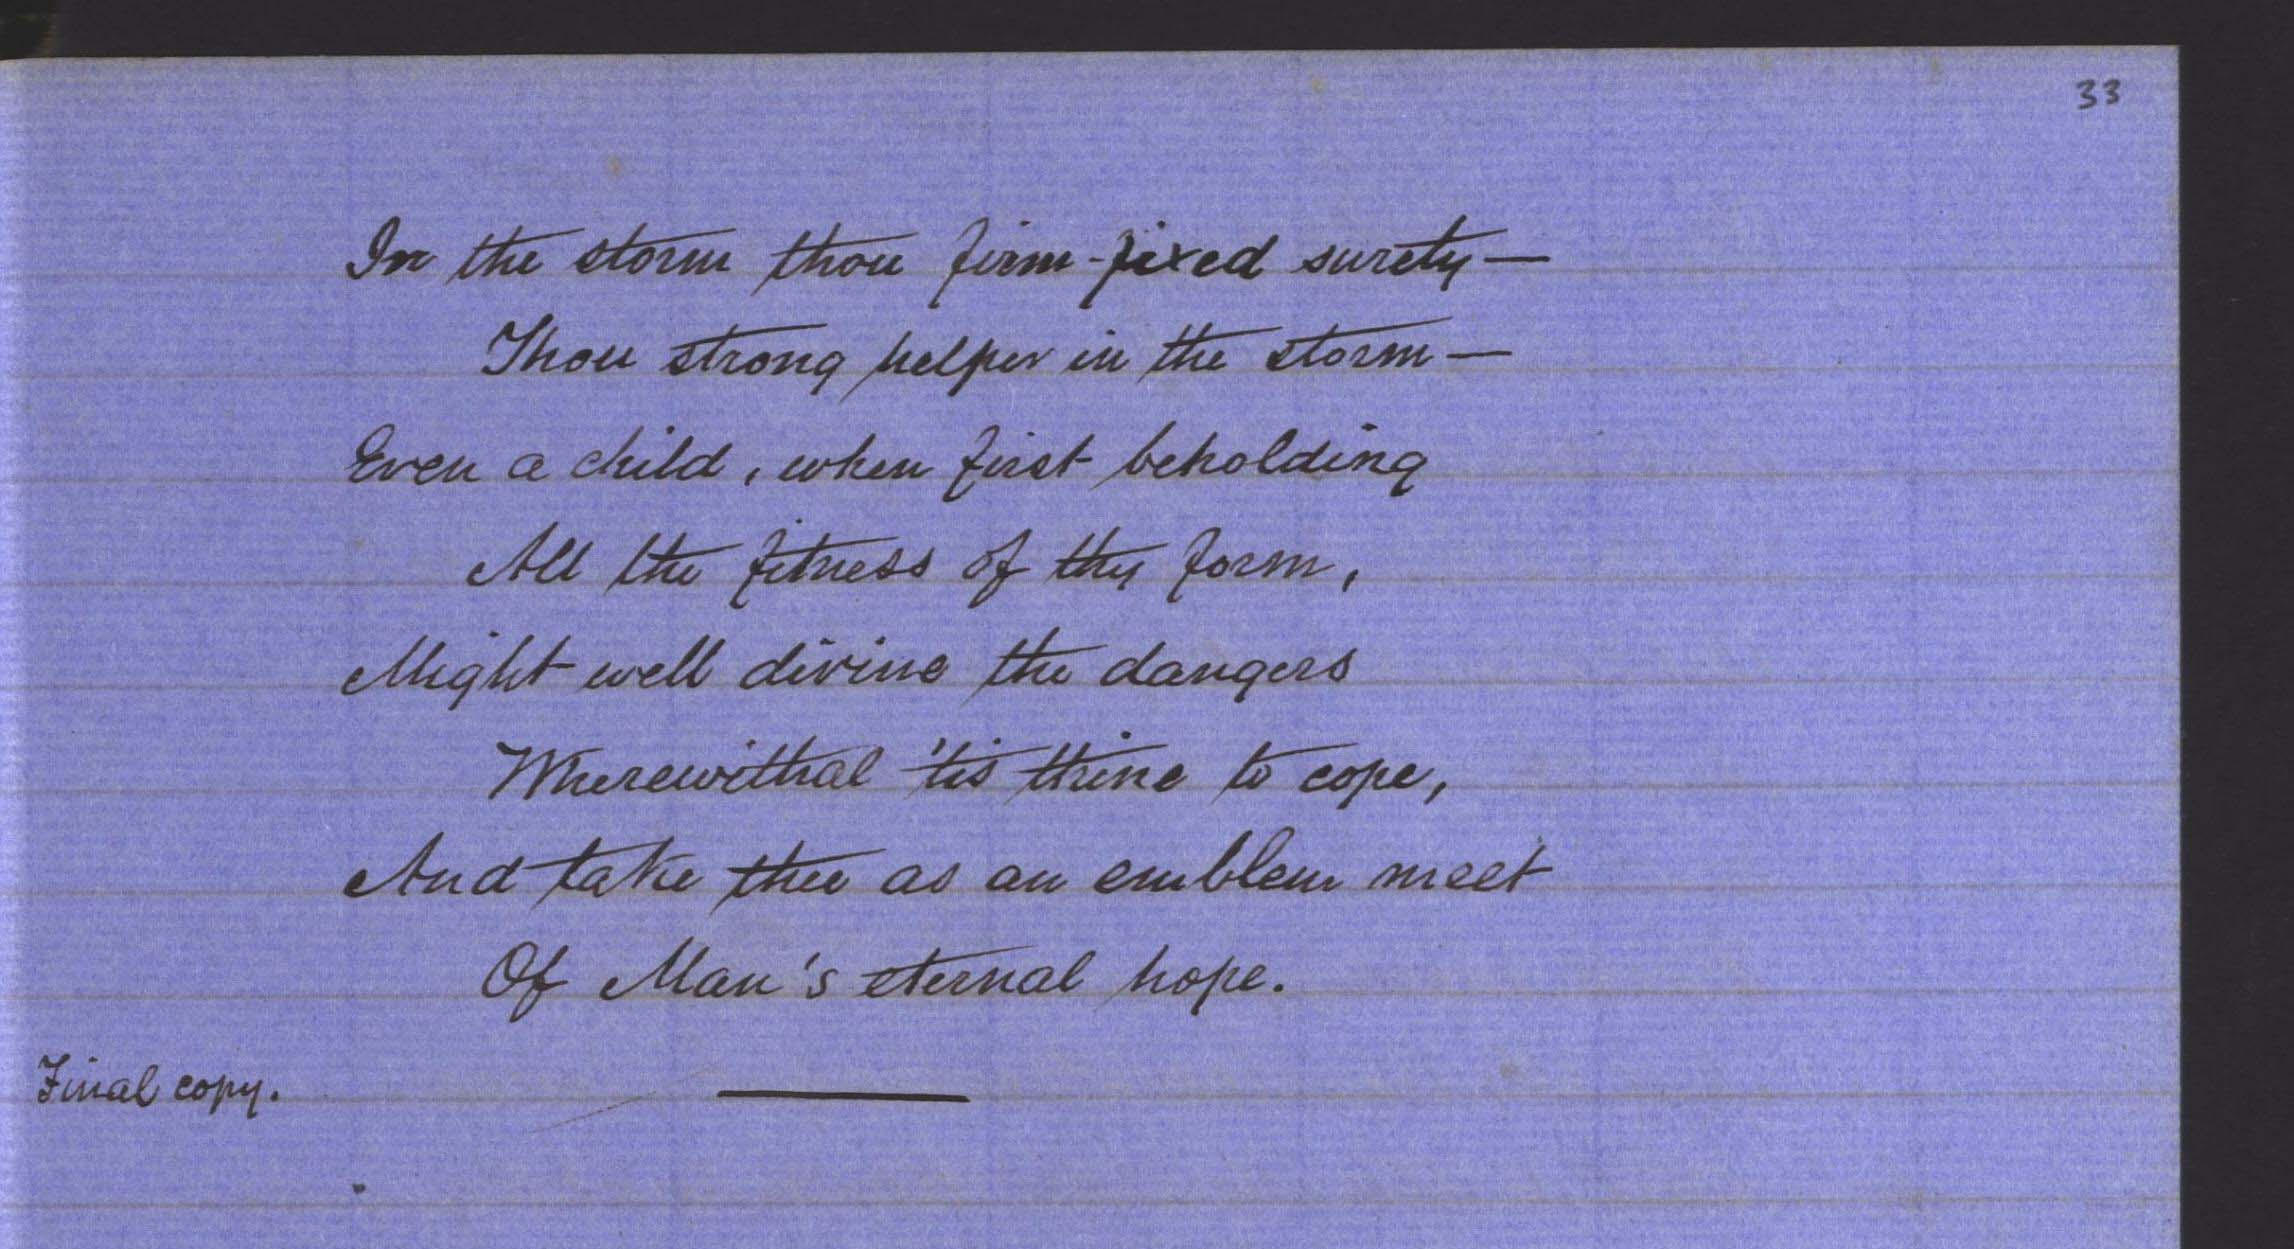 33
In the storm thou firm-fixed surety—
Thou strong helper in the storm—
Even a child, when first beholding
All the fitness of thy form,
Might well divine the dangers
Wherewithal 'tis thine to cope,
And take thee as an emblem meet
Of Man's eternal hope.
Final copy.